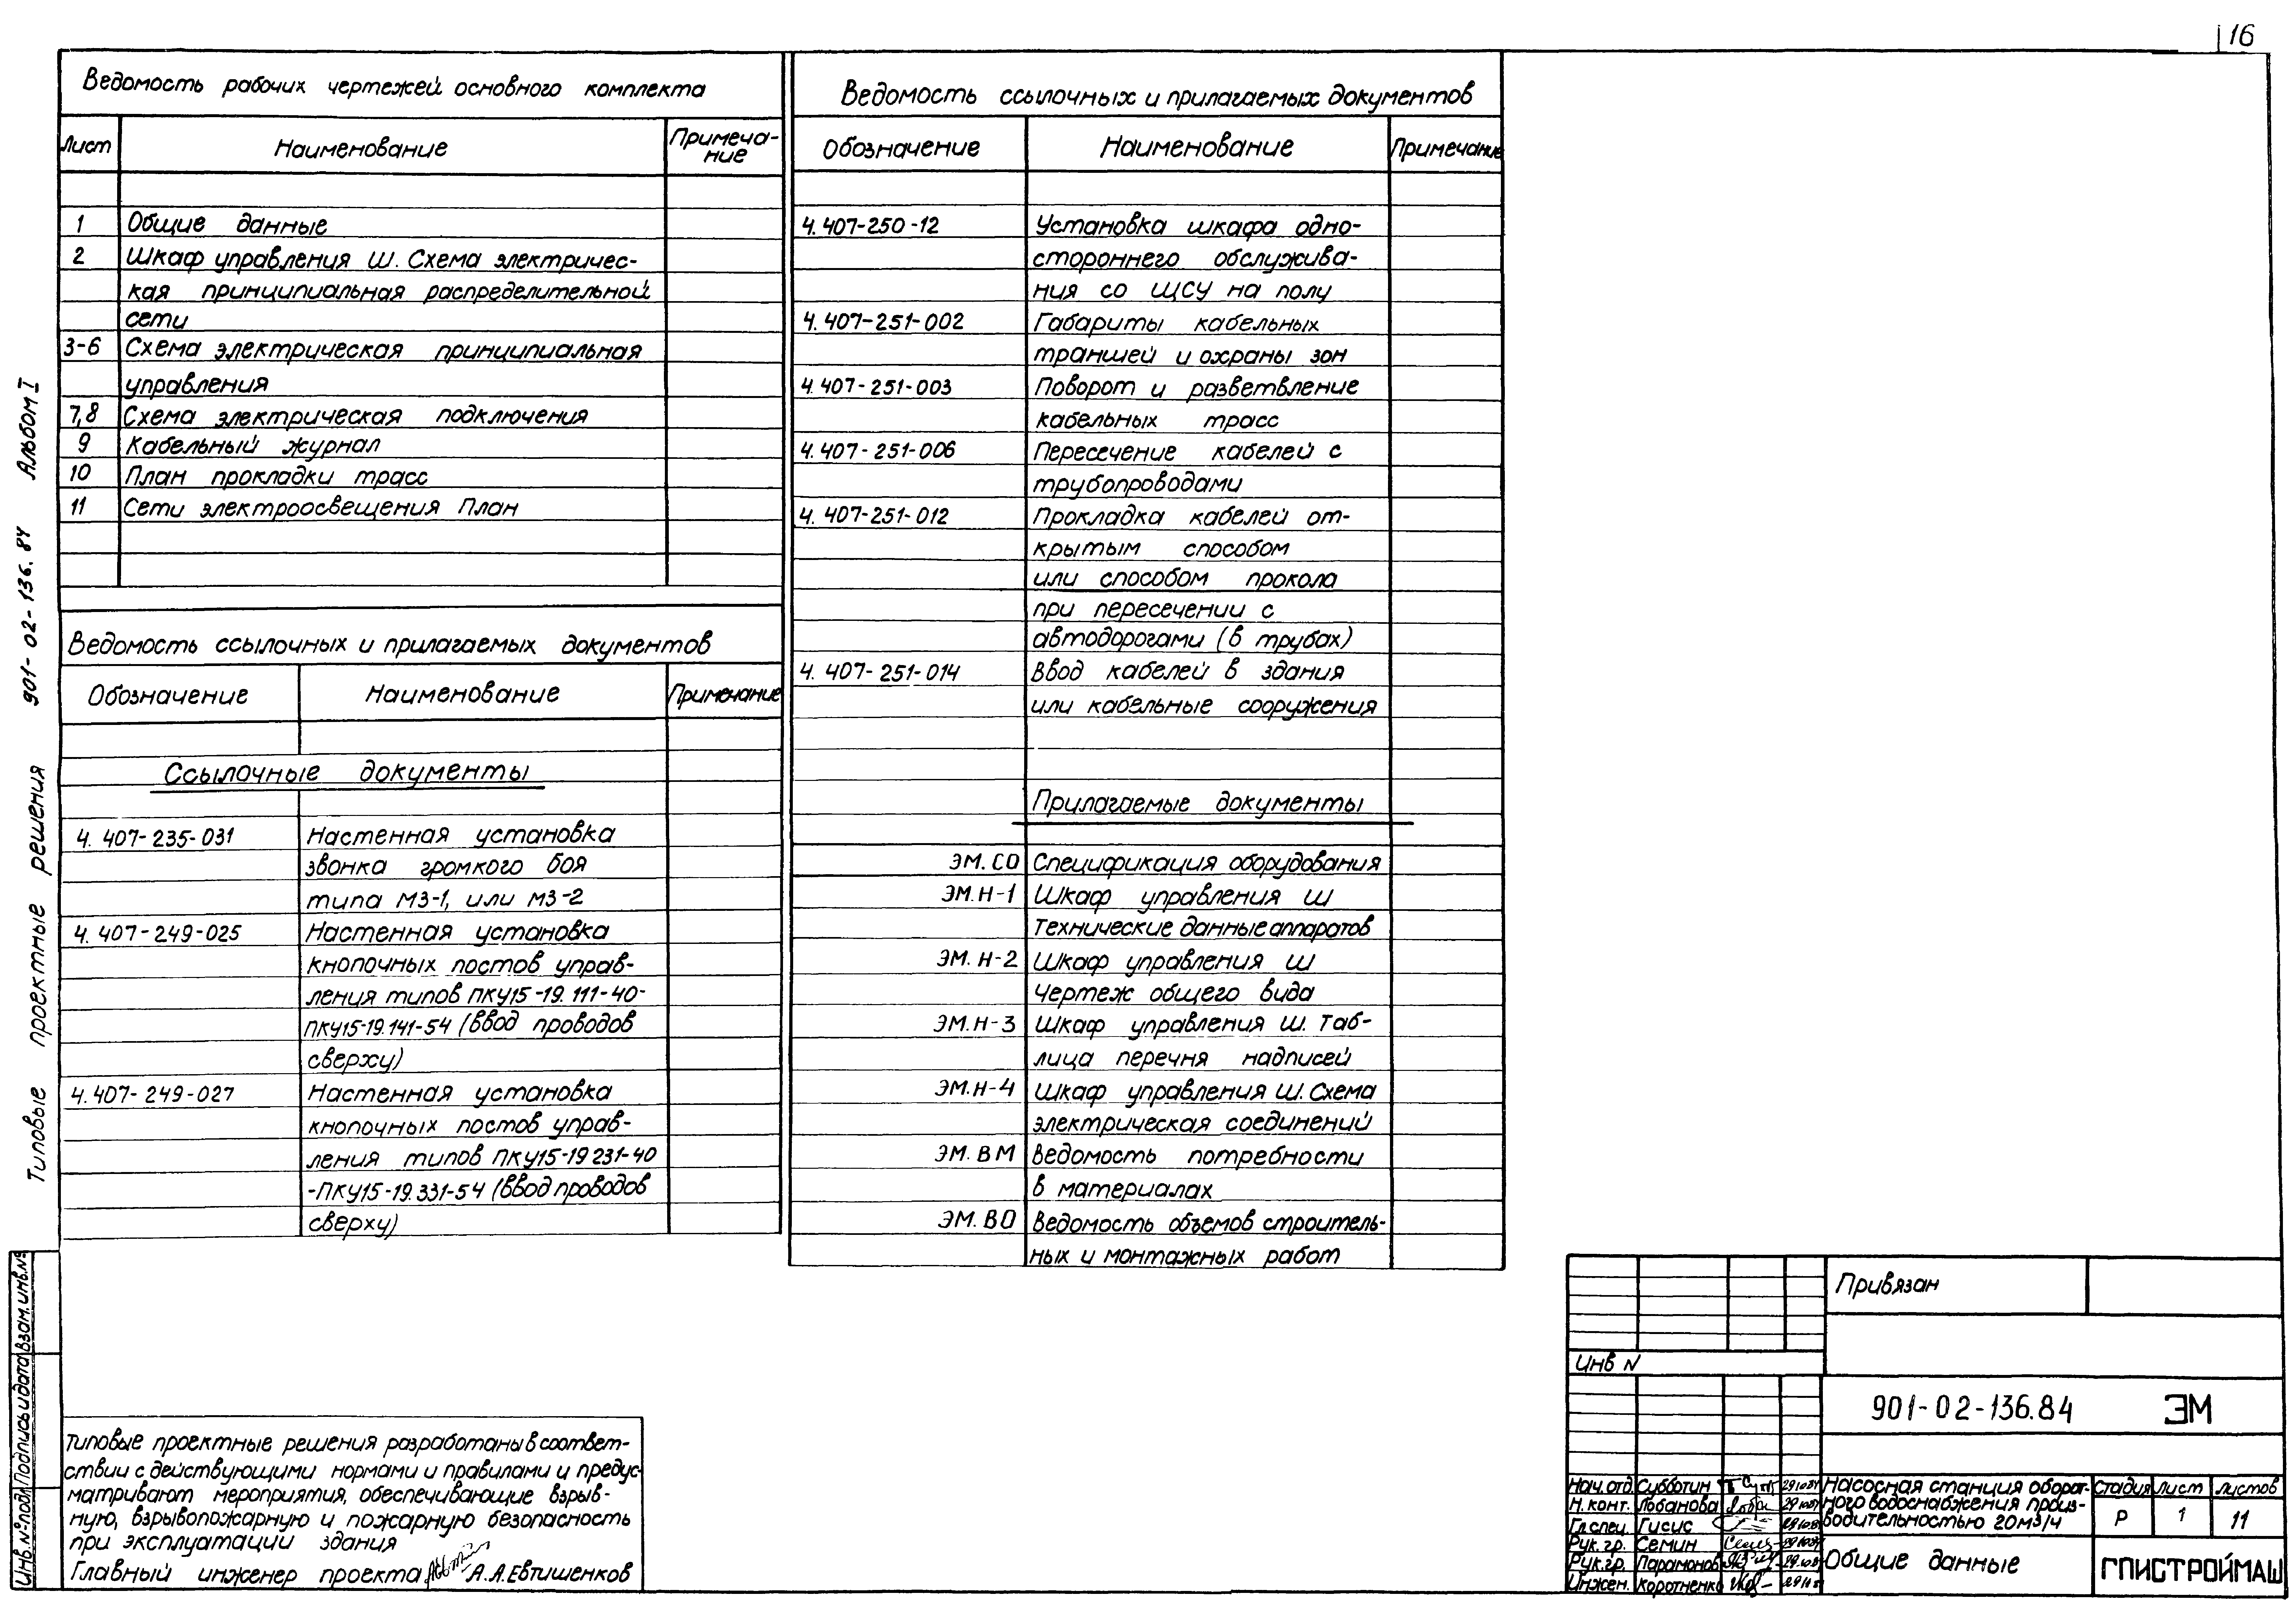 16
Ведомость рабочих чертежей основного комплекта
Лист Наименование Примеча-
ние
1 Общие данные
2 Шкаф управления Ш. Схема электричес-
кая принципиальная распределительной
сети
3-6 Схема электрическая принципиальная
управления
7,8 Схема электрическая подключения
9 Кабельный журнал
10 План прокладки трасс
11 Сети электроосвещения План
Ведомость ссылочных и прилагаемых документов
Обозначение Наименование Примечание
Ссылочные документы
4.407-235-031 Настенная установка
звонка громкого боя
типа МЗ-1, или МЗ-2
4.407-249-025 Настенная установка
кнопочных постов управ-
ления типов ПКУ15-19.111-40-
ПКУ15-19.141-54 (ввод проводов
сверху)
4.407-249-027 Настенная установка
кнопочных постов управ-
ления типов ПКУ15-19 231-40
-ПКУ15-19.331-54 (ввод проводов
сверху)
Ведомость ссылочных и прилагаемых документов
Обозначение Наименование Примечание
4.407-250-12 Установка шкафа одно-
стороннего обслужива-
ния со ЩСУ на полу
4.407-251-002 Габариты кабельных
траншей и охраны зон
4.407-251-003 Поворот и разветвление
кабельных трасс
4.407-251-006 Пересечение кабелей с
трубопроводами
4.407-251-012 Прокладка кабелей от-
крытым способом
или способом прокола
при пересечении с
автодорогами (в трубах)
4.407-251-014 Ввод кабелей в здания
или кабельные сооружения
Прилагаемые документы
ЭМ.СО Спецификация оборудования
ЭМ.Н-1 Шкаф управления Ш
Технические данные аппаратов
ЭМ.Н-2 Шкаф управления Ш
Чертеж общего вида
ЭМ.Н-3 Шкаф управления Ш. Таб-
лица перечня надписей
ЭМ.Н-4 Шкаф управления Ш. Схема
электрическая соединений
ЭМ.ВМ Ведомость потребности
в материалах
ЭМ.ВО Ведомость объемов строитель-
ных и монтажных работ
Типовые проектные решения 901-02-136.84 Альбом I
Инв.№подл. Подпись и дата Взам.инв.№
Типовые проектные решения разработаны в соответ-
ствии с действующими нормами и правилами и предус-
матривают мероприятия, обеспечивающие взрыв-
ную, взрывопожарную и пожарную безопасность
при эксплуатации здания
Главный инженер проекта А.А.Евтишенков
Привязан
Инв N
901-02-136.84 ЭМ
Нач.отд Субботин
Н.конт. Лобанова
Гл спец. Гисис
Рук.гр. Семин
Рук.гр. Парамонов
Инжен. Коротненко
Насосная станция оборот-
ного водоснабжения произ-
водительностью 20м3/ч
Стадия Лист Листов
Р 1 11
Общие данные
ГПИСТРОЙМАШ